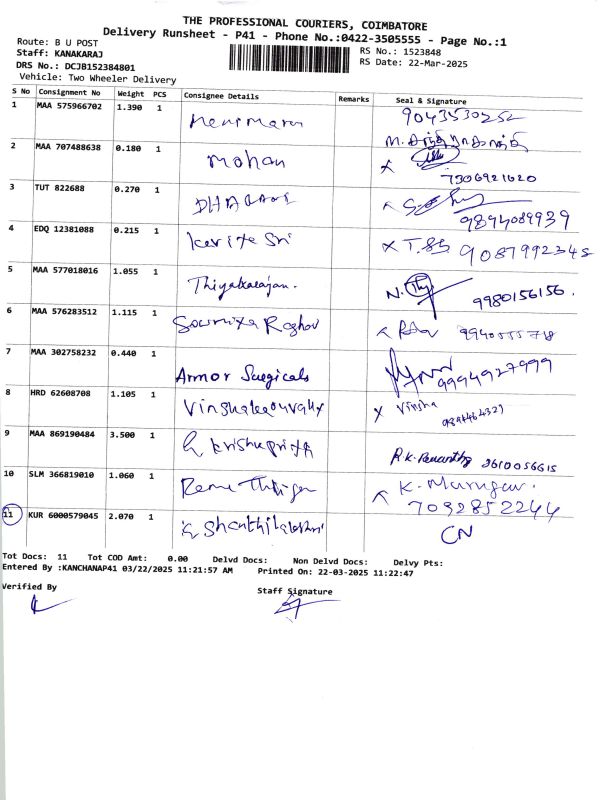 THE PROFESSIONAL COURIERS, COIMBATORE
Delivery Runsheet - P41 - Phone No.:0422-3505555 - Page No.:1
Route: B U POST
Staff: KANAKARAJ
DRS No.: DCJB152384801
Vehicle: Two Wheeler Delivery
RS No.: 1523848
RS Date: 22-Mar-2025
S No Consignment No Weight PCS Consignee Details Remarks Seal & Signature
1 MAA 575966702 1.390 1 9043530252
2 MAA 707488638 0.180 1 mohan 7306921620
3 TUT 822688 0.270 1 9894089939
4 EDQ 12381088 0.215 1 9087992345
5 MAA 577018016 1.055 1 Thiyakarajan. 9980156156.
6 MAA 576283512 1.115 1 Sowmiya Raghav
7 MAA 302758232 0.440 1 Armor Surgicals 9994927999
8 HRD 62608708 1.105 1 X Vinsha
9 MAA 869190484 3.500 1 krishnapriya
10 SLM 366819010 1.060 1 K. Murugan. 7092852244
11 KUR 6000579045 2.070 1 CN
Tot Docs: 11 Tot COD Amt: 0.00 Delvd Docs: Non Delvd Docs: Delvy Pts:
Entered By :KANCHANAP41 03/22/2025 11:21:57 AM Printed On: 22-03-2025 11:22:47
Verified By
Staff Signature